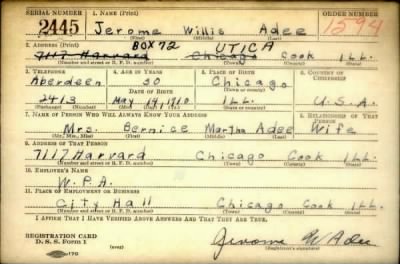 SERIAL NUMBER 1. NAME (Print) ORDER NUMBER
2445 Jerome Willis Adee 1594
(First) (Middle) (Last)
2. ADDRESS (Print) BOX 72 UTICA
7117 Harvard Chicago Cook ILL.
(Number and street or R. F. D. number) (Town) (County) (State)
3. TELEPHONE 4. AGE IN YEARS 5. PLACE OF BIRTH 6. COUNTRY OF CITIZENSHIP
Aberdeen 30 Chicago
DATE OF BIRTH (Town or county)
2413 May 19, 1910 ILL. U.S.A.
(Exchange) (Number) (Mo.) (Day) (Yr.) (State or country)
7. NAME OF PERSON WHO WILL ALWAYS KNOW YOUR ADDRESS 8. RELATIONSHIP OF THAT PERSON
Mrs. Bernice Martha Adee Wife
(Mr., Mrs., Miss) (First) (Middle) (Last)
9. ADDRESS OF THAT PERSON
7117 Harvard Chicago Cook ILL.
(Number and street or R. F. D. number) (Town) (County) (State)
10. EMPLOYER'S NAME
W.P.A.
11. PLACE OF EMPLOYMENT OR BUSINESS
City Hall Chicago Cook ILL.
(Number and street or R. F. D. number) (Town) (County) (State)
I AFFIRM THAT I HAVE VERIFIED ABOVE ANSWERS AND THAT THEY ARE TRUE.
REGISTRATION CARD
D. S. S. Form 1 (over) Jerome W Adee
(Registrant's signature)